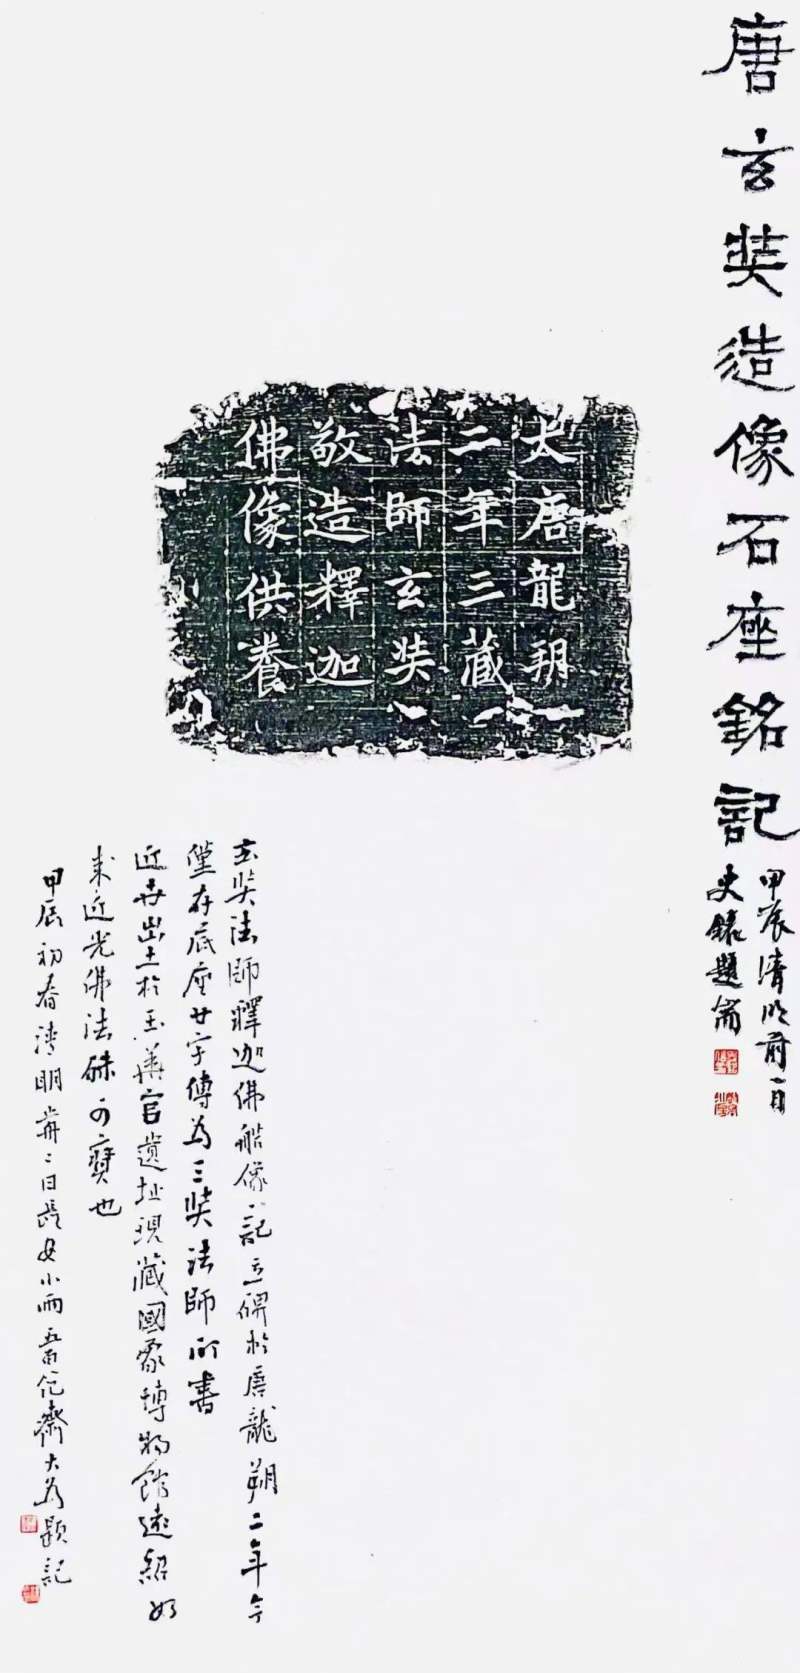 唐玄奘造像石座銘記
甲辰清明前一日
史鐩題耑
大唐龍朔
二年三藏
法師玄奘
敬造釋迦
佛像供養
玄奘法師釋迦佛造像記立碑於唐龍朔二年今
僅存底座廿字傳為三奘法師所書
近世出土於玉華宫遺址現藏國家博物館遠紹如
來近光佛法殊可寶也
甲辰初春清明前二日長安小雨大為題記